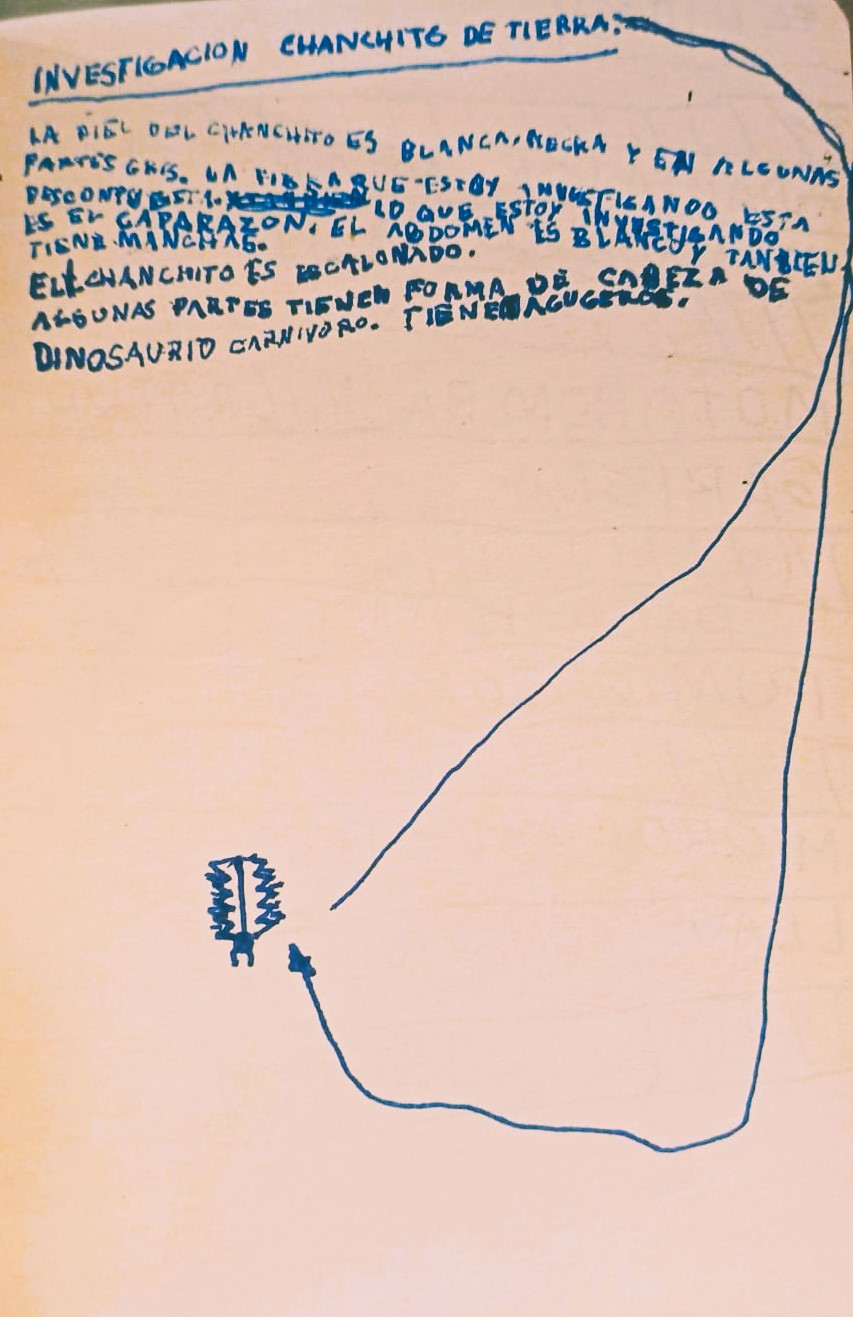 INVESTIGACION CHANCHITO DE TIERRA:
LA PIEL DEL CHANCHITO ES BLANCA, NEGRA Y EN ALGUNAS
PARTES GRIS. LA QUE ESTOY INVESTIGANDO ESTA
DESCONPUESTA. LO QUE ESTOY INVESTIGANDO
ES EL CAPARAZON. EL ABDOMEN ES BLANCO Y TANBIEN
TIENE MANCHAS.
EL CHANCHITO ES ESCALONADO.
ALGUNAS PARTES TIENEN FORMA DE CABEZA DE
DINOSAURIO CARNIVORO. TIENE AGUGEROS.